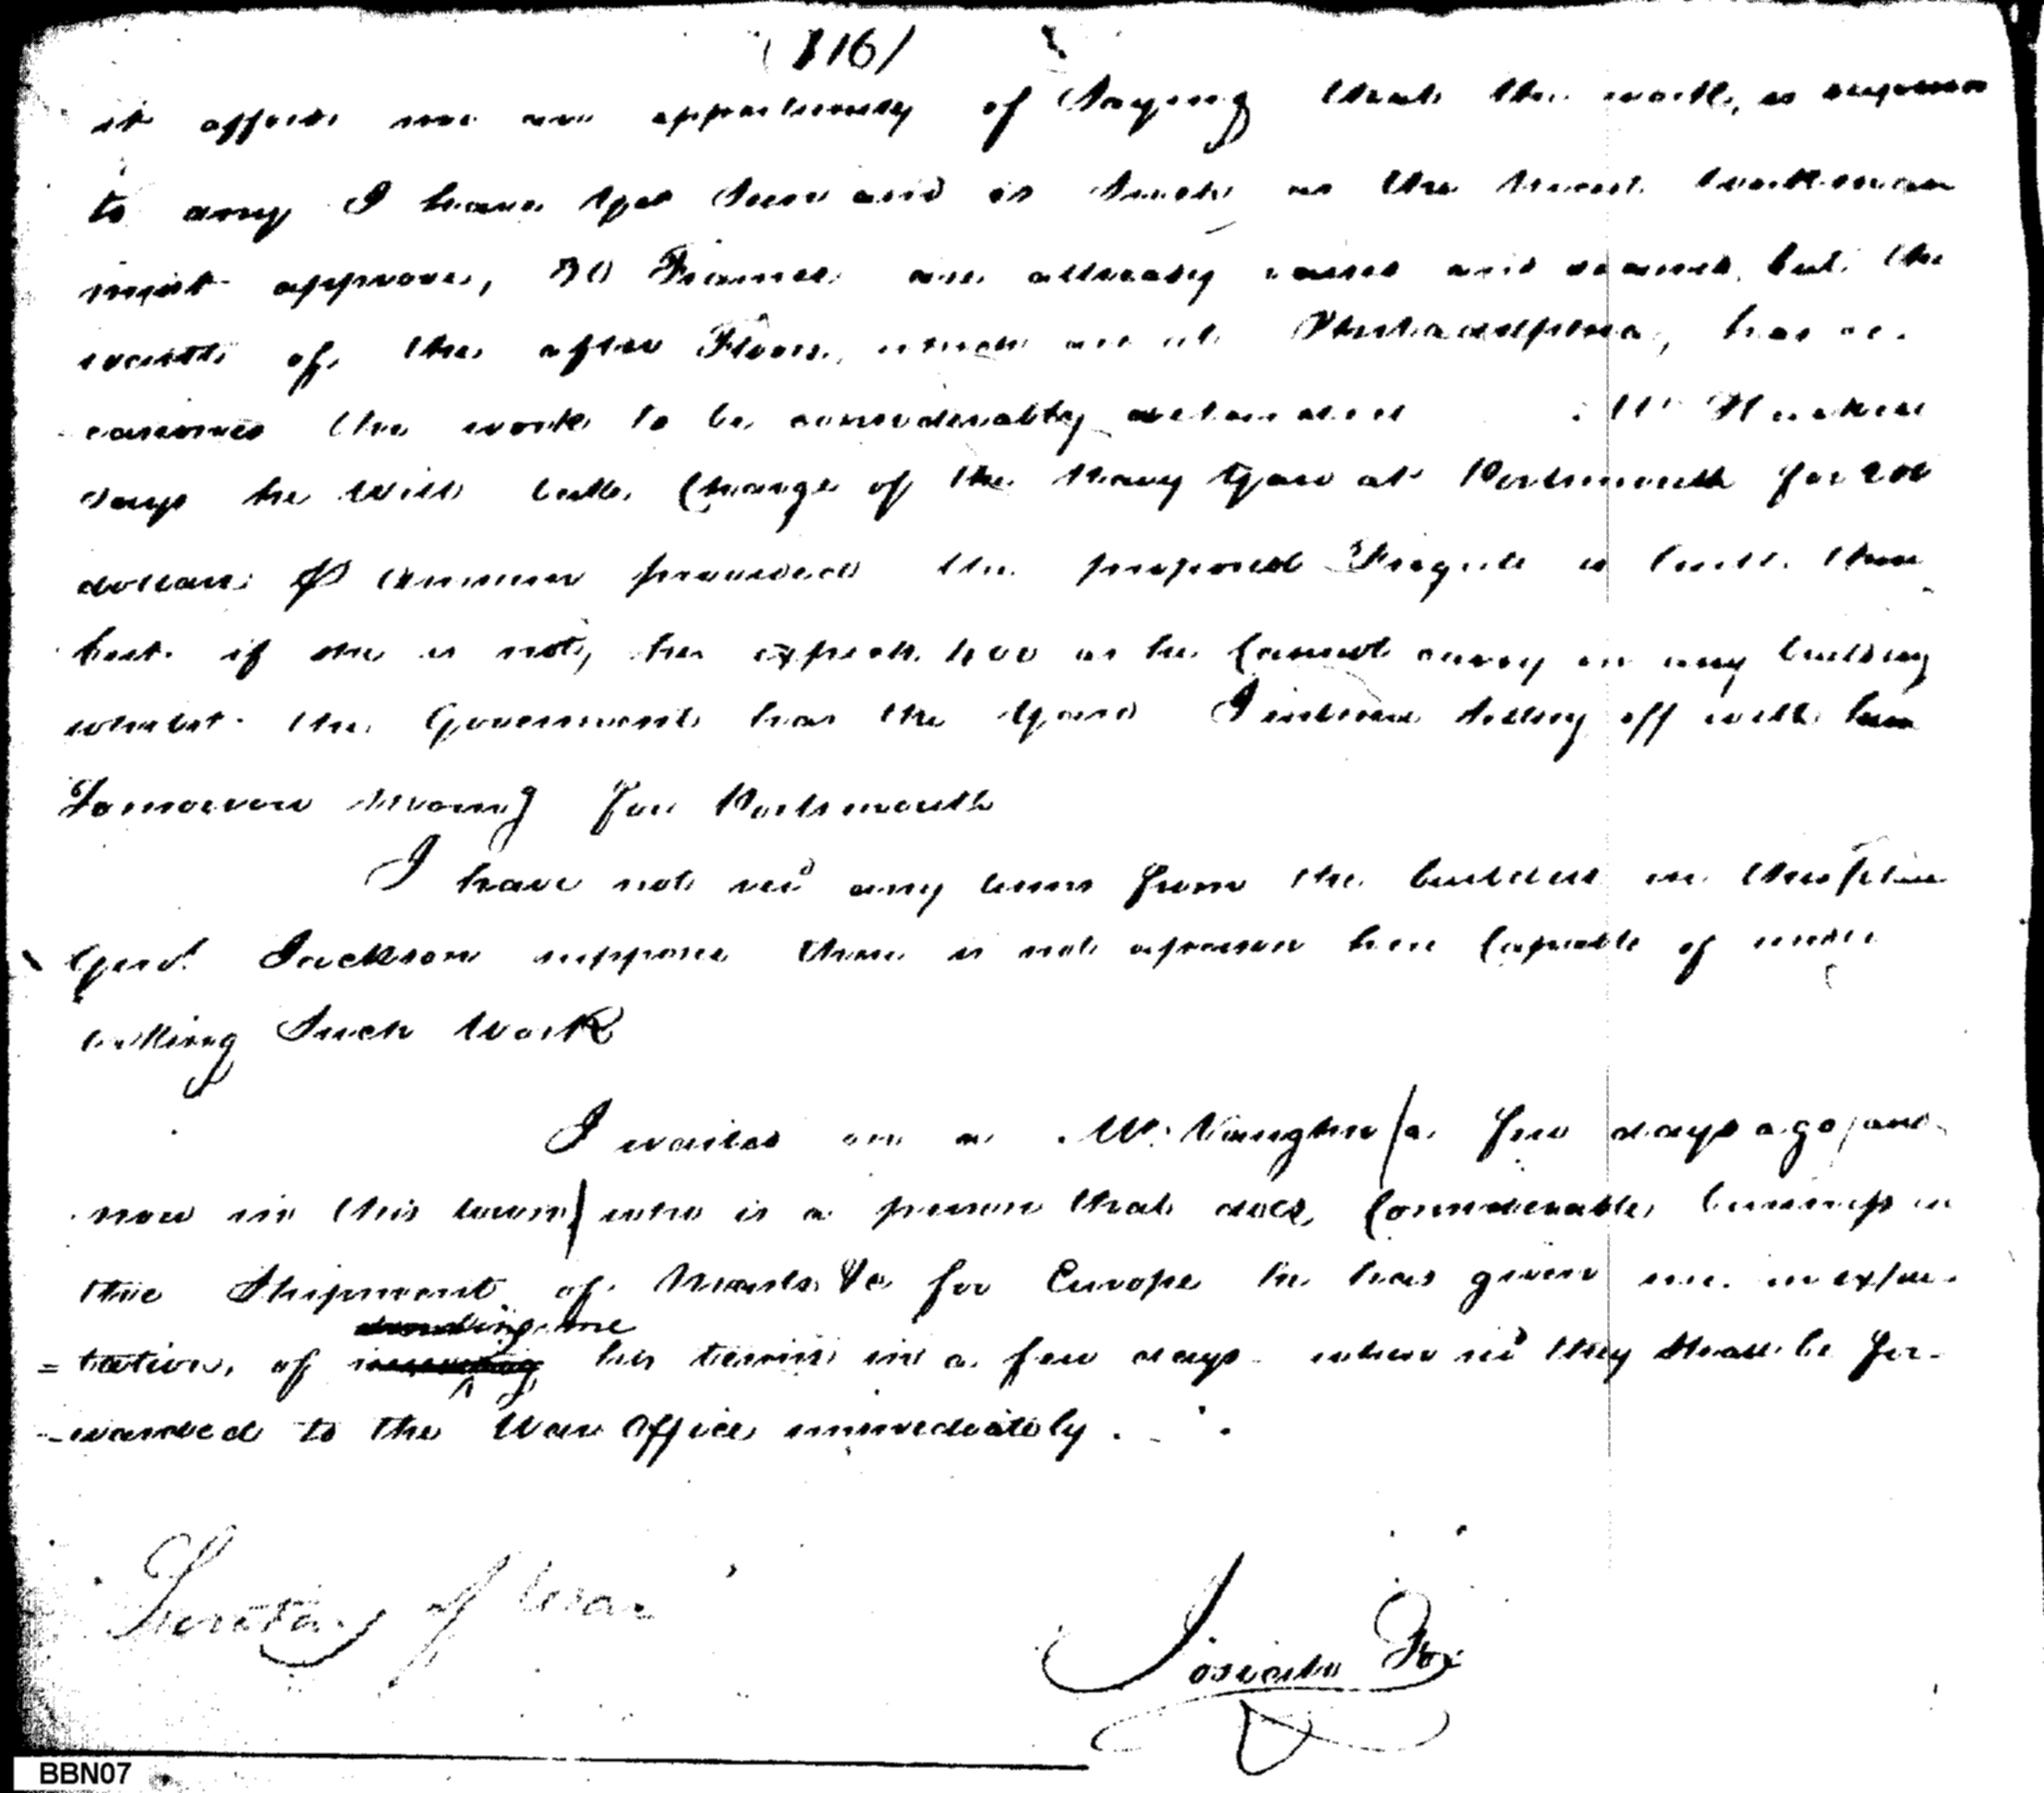 (116)
it affords me an opportunity of Saying that the work, is superior
to any I have yet Seen and is Such as the nicest workman
must approve, 30 Frames are allready raised and but the
want of the after Floors, which are at Philadelphia, has oc-
casioned the work to be considerably retarded Mr Hackett
says he will take Charge of the Navy Yard at Portsmouth for
dollars Annum provided the proposed Frigate is built there
but if she is not, he expects 400 as he Cannot carry on any building
whilst the Government has the Yard I intend setting off with him
Tomorrow Morng for Portsmouth
I have not recd any terms from the builders in this place
Genl Jackson supposes there is not a person here Capable of under
taking Such Work
I waited on a Mr Vaughn (a few days ago, and
now in this town) who is a person that does Considerable business in
the Shipment of Masts &c for Europe he has given me in expec-
=tation, of his terms in a few days when recd they Shall be for-
-warded to the War Office immediately.
Secretary of War
Josiah Fox
BBN07